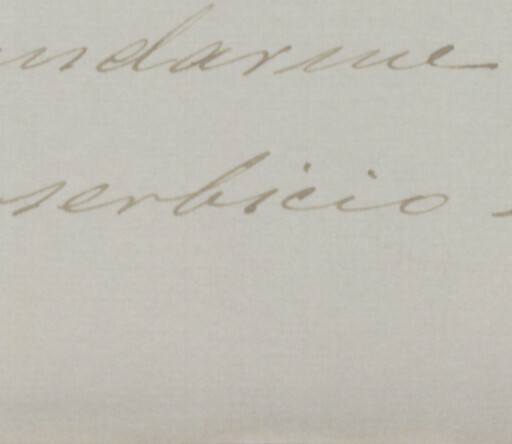 ndarme
serbicio